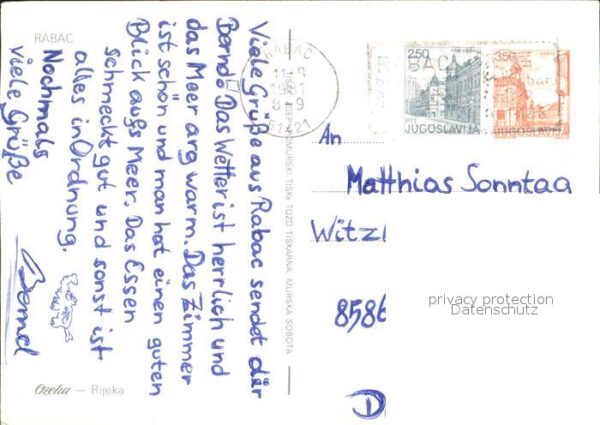 RABAC
Viele Grüße aus Rabac sendet dir
Bernd. Das Wetter ist herrlich und
das Meer arg warm. Das Zimmer
ist schön und man hat einen guten
Blick aufs Meer. Das Essen
schmeckt gut und sonst ist
alles in Ordnung.
Nochmals
viele Grüße
Bernd
Rijeka
TISK: POMURSKI TISK TOZD TISKARNA, MURSKA SOBOTA
RABAC
51421
2.50
JUGOSLAVIJA
3.50
JUGOSLAVIJA
An
Matthias Sonntag
Witzl
858
D
privacy protection
Datenschutz